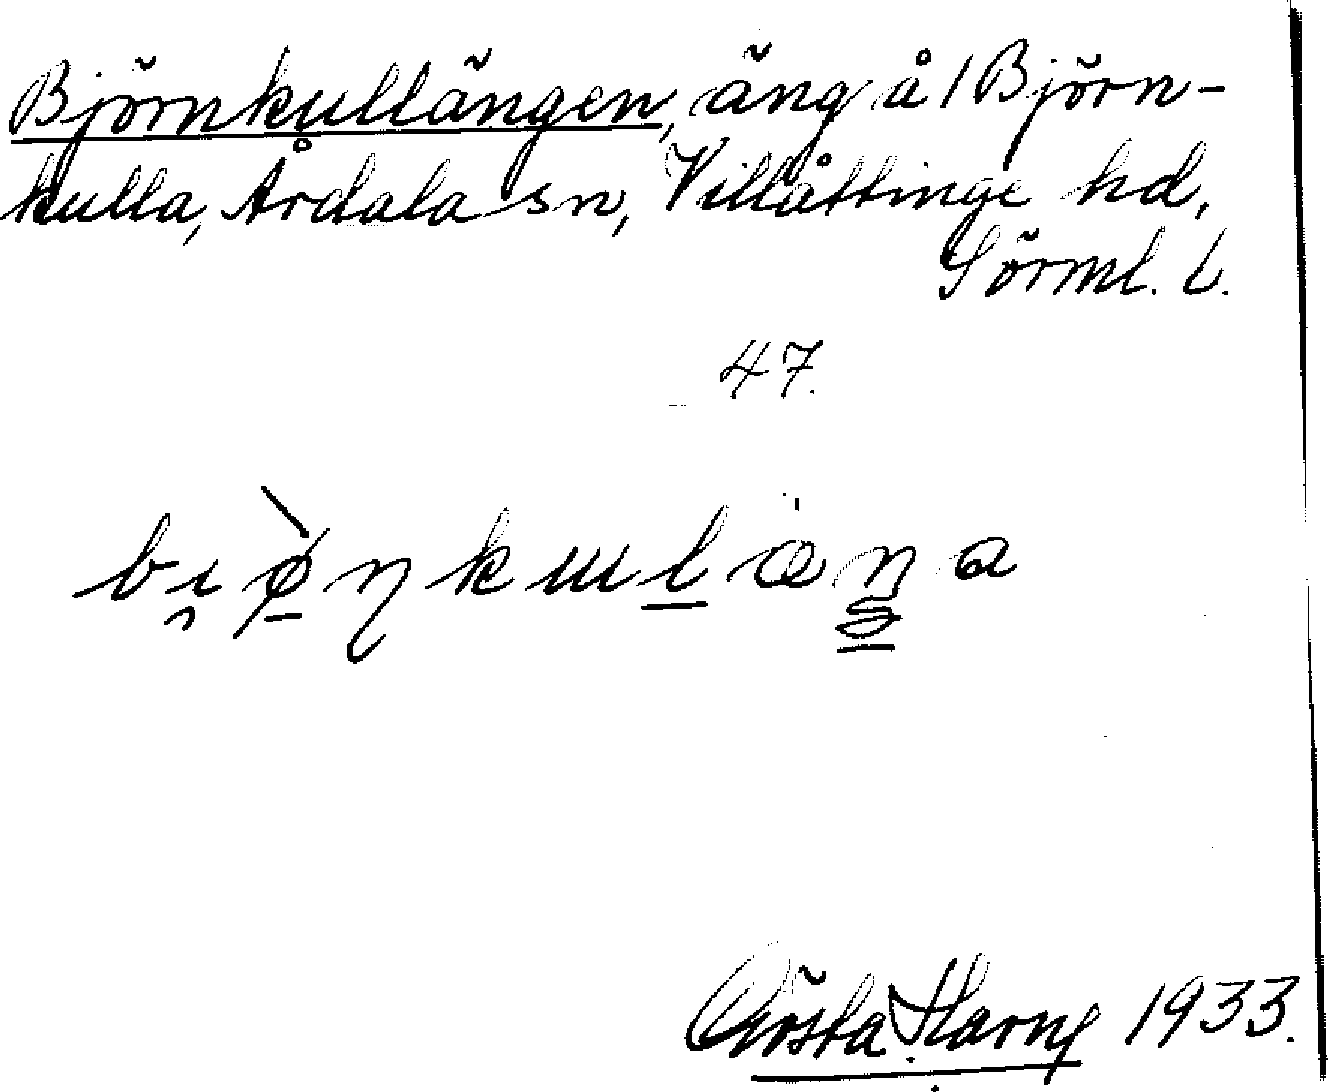 Björnkullängen, äng å 1 Björn-
kulla, Årdala sn, Villåttinge hd,
Sörml. l.
47.
bi̯ø̀ɳkɯlæŋa
Gösta Harng 1933.